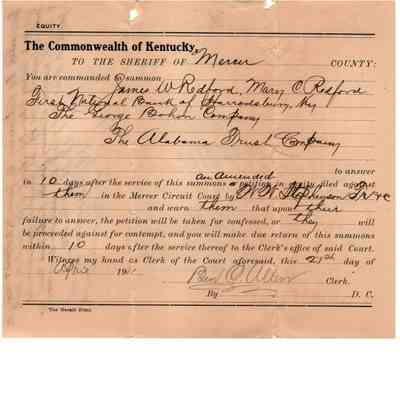 EQUITY.
The Commonwealth of Kentucky,
TO THE SHERIFF OF Mercer COUNTY:
You are commanded to summon
James W Redford, Mary C Redford
First National Bank of Harrodsburg, Ky
The George Bohon Company,
The Alabama Trust Company
to answer
an amended
in 10 days after the service of this summons a petition in equity filed against
them in the Mercer Circuit Court by W W Stephenson Tr &c
and warn them that upon their
failure to answer, the petition will be taken for confessed, or they will
be proceeded against for contempt, and you will make due return of this summons
within 10 days after the service thereof to the Clerk's office of said Court.
Witness my hand as Clerk of the Court aforesaid, this 21st day of
April 191 Ben C Allin Clerk.
By D. C.
The Herald Print